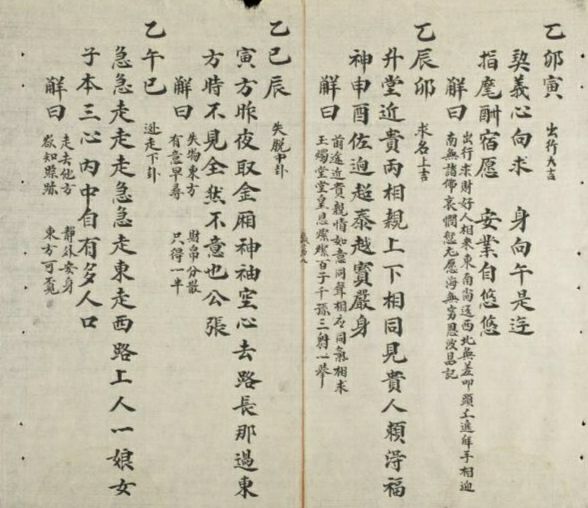 乙卯寅 出行大吉
契義心向求 身向午是迍
指麾酬宿愿 安業自悠悠
解曰 出行求財好人相來東南尚送西北無差叩頭工遙解手相迎
南無諸佛哀憫
乙辰卯 求名上吉
升堂近貴兩相親上下相同見貴人賴淂福
神申酉佐迫超泰越寳嚴身
解曰 前途近貴親情如意同聲相应同氣相求
玉燭堂堂皇恩 百子千孫三射一舉
乙巳辰 失脱中卦
寅方昨夜取金厢神袖空心去路長那過東
方時不見全然不意也公張
解曰 失物東方 財帛分散
有意早尋 只得一半
乙午巳 逃走下卦
急急走走走走急急走東走西路上人一娘女
子本三心内中自有多人口
解曰 走去他方 靜外安身
欲知賬賑 東方可覔